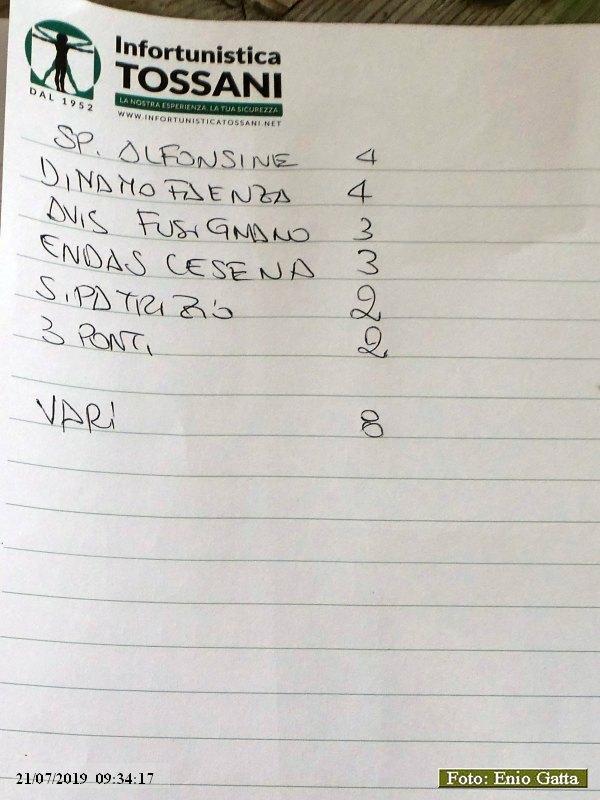 Infortunistica
TOSSANI
DAL 1952
LA NOSTRA ESPERIENZA, LA TUA SICUREZZA
WWW.INFORTUNISTICATOSSANI.NET
SP. ALFONSINE 4
DINAMO FAENZA 4
AVIS FUSIGNANO 3
ENDAS CESENA 3
S. PATRIZIO 2
3 PONTI 2
VARI 8
21/07/2019 09:34:17
Foto: Enio Gatta